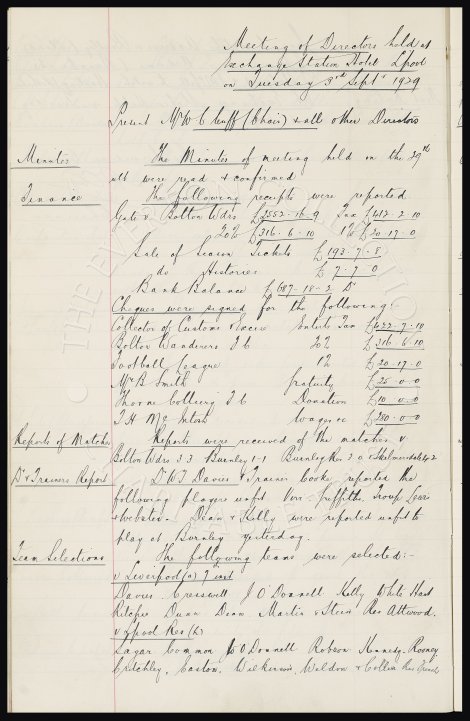 Meeting of Directors held at
Exchange Station Hotel Lpool
on Tuesday 3rd Septr 1929
Present Mr W C Cuff (Chair) & all other Directors
Minutes
The Minutes of meeting held on the 29th
ult were read & confirmed
Finance
The following receipts were reported
Gate v. Bolton Wdrs £2552-16-9 Tax £412-2-10
20% £316-6-10 1% £20-17-0
Sale of Season Tickets £193-7-8
do Histories £7-7-0
Bank Balance £687-18-2 Dr
Cheques were signed for the following:-
Collector of Customs & Excise Entents Tax £422-7-10
Bolton Wanderers F C 20% £316-6-10
Football League 1% £20-17-0
Mr B Smith gratuity £25-0-0
Thorne Colliery F C Donation £10-0-0
T H McIntosh Wages &c £280-0-0
Reports of Matches
Reports were received of the matches v.
Bolton Wdrs 3.3 Burnley 1-1 Burnley Res 2.0 & Skelmersdale 4-2
Dr & Trainers Report
Dr W J Davies & Trainer Cooke reported the
following players unfit Griffiths, Troup
& Webster. Dean & Kelly were reported unfit to
play at Burnley yesterday.
Team Selections
The following teams were selected:-
v Liverpool (a) 7 inst
Davies Cresswell J O'Donnell Kelly White Hart
Ritchie Dunn Dean Martin & Stein Res Attwood.
v Lpool Res (h)
Sagar Common O'Donnell Robson Kennedy Rooney
Critchley. Easton. Wilkinson Weldon & Collin Res